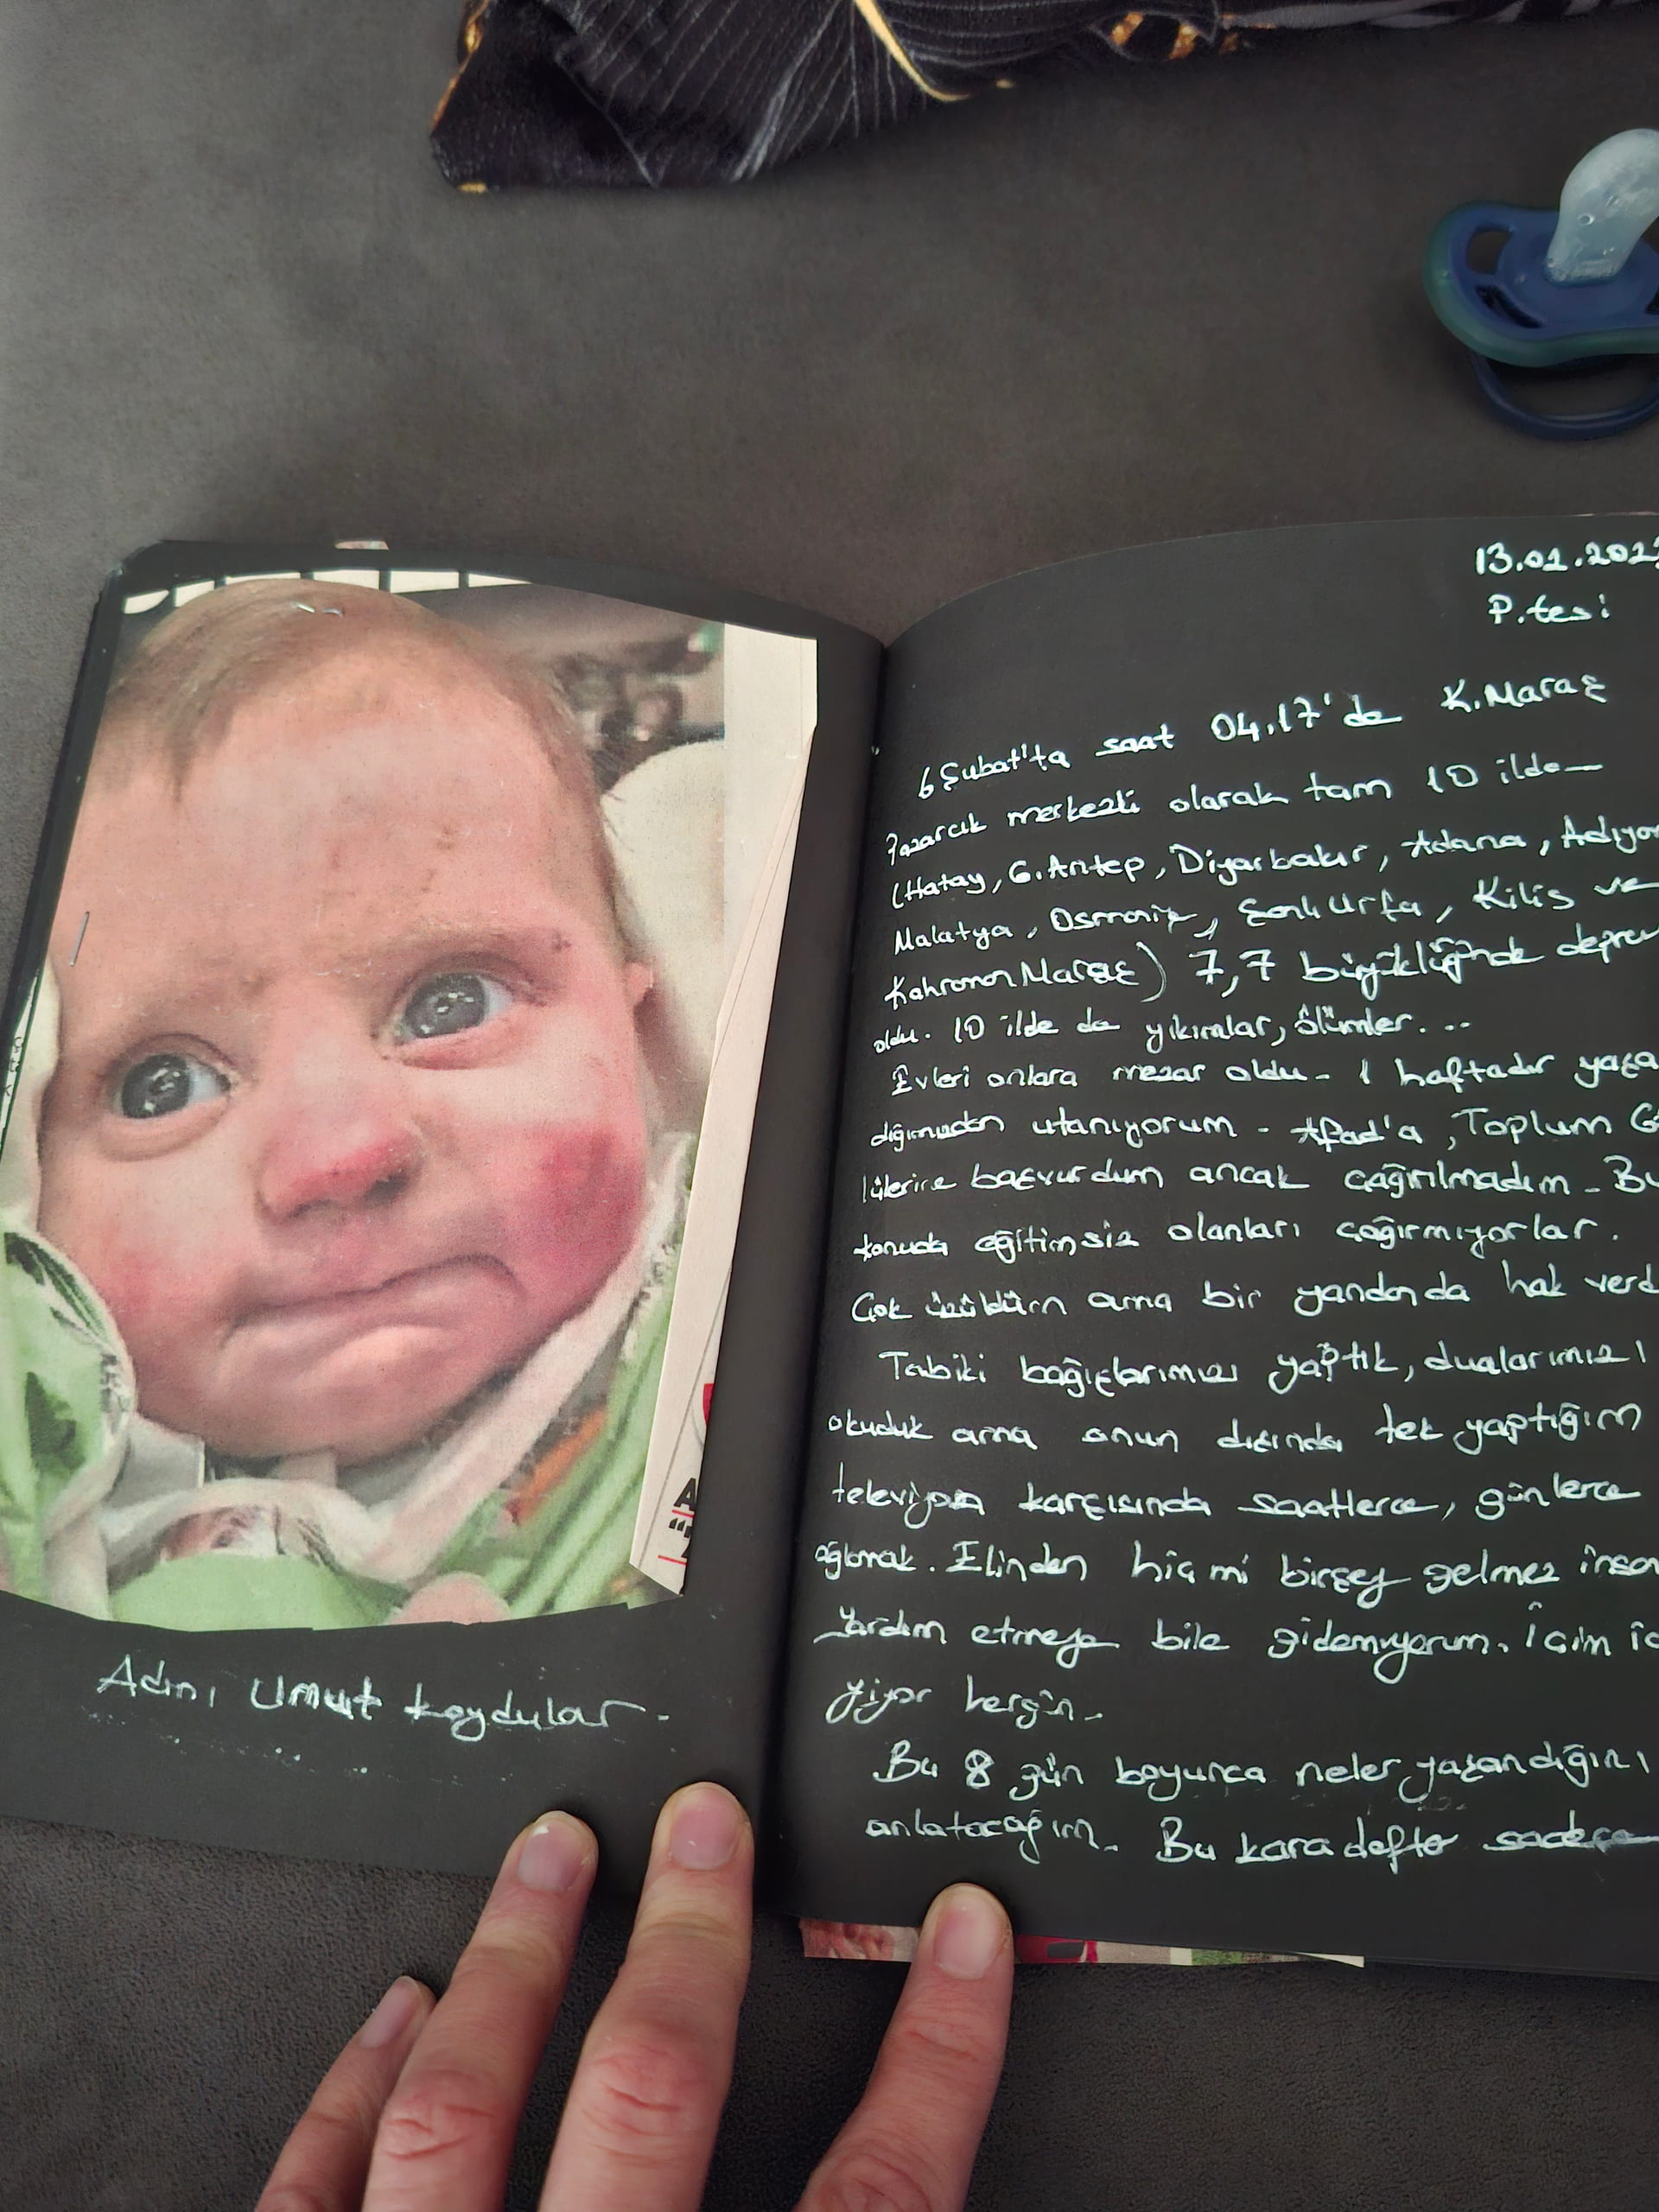 Adını Umut koydular.
13.02.202
P.tesi
6 Şubat'ta saat 04.17'de K.Maraş
Pazarcık merkezli olarak tam 10 ilde
(Hatay, G.Antep, Diyarbakır, Adana, Adıya
Malatya, Osmaniye, Şanlı Urfa, Kilis ve
Kahraman Maraş) 7,7 büyüklüğünde depre
oldu. 10 ilde de yıkımlar, ölümler...
Evleri onlara mezar oldu. 1 haftadır yaşa
dığımızdan utanıyorum. Afad'a, Toplum G
lülerine başvurdum ancak çağırılmadım. Bu
konuda eğitimsiz olanları çağırmıyorlar.
Çok üzüldüm ama bir yandan da hak verd
Tabiki bağışlarımızı yaptık, dualarımızı
okuduk ama onun dışında tek yaptığım
televizyon karşısında saatlerce, günlerce
ağlamak. Elinden hiç mi birşey gelmez insa
Yardım etmeye bile gidemiyorum. İçim iç
yiyor hergün.
Bu 8 gün boyunca neler yaşandığını
anlatacağım. Bu kara defter sadece